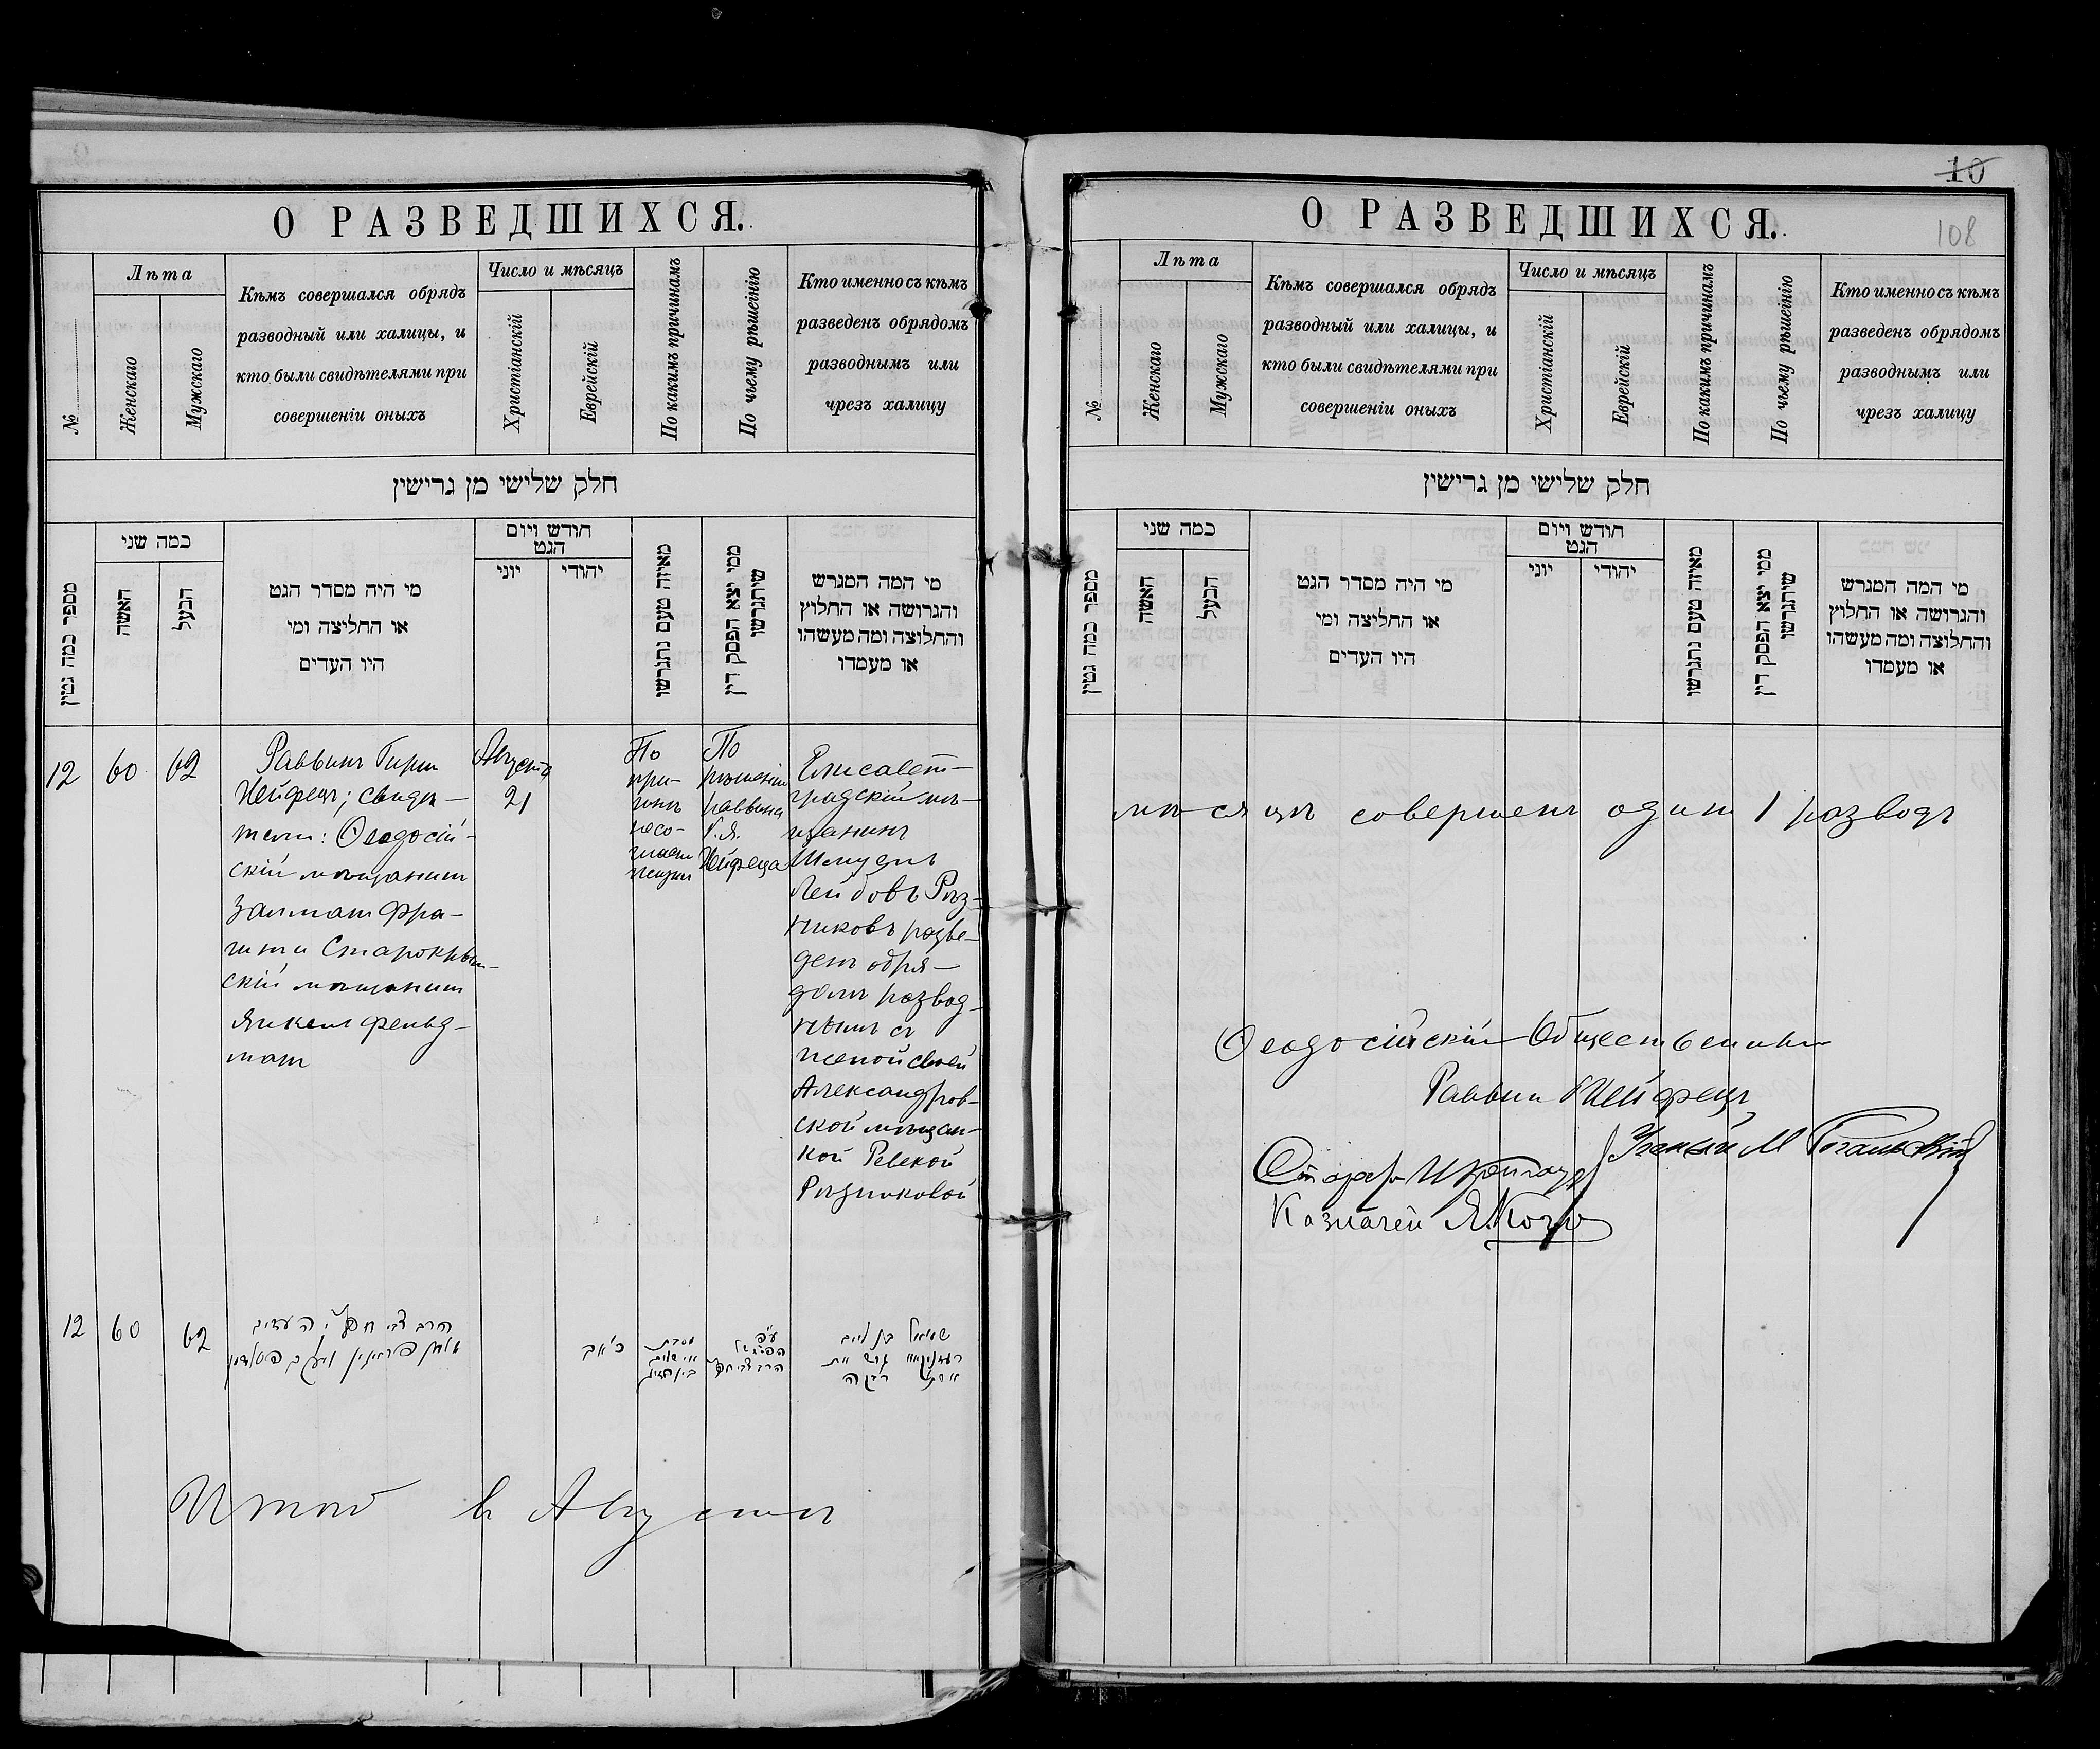 О РАЗВЕДШИХСЯ.
№
Лѣта
Женскаго
Мужскаго
Кѣмъ совершался обрядъ
разводный или халицы, и
кто были свидѣтелями при
совершеніи оныхъ
Число и мѣсяцъ
Христіанскій
Еврейскій
По какимъ причинамъ
По чьему рѣшеінію
Кто именно съ кѣмъ
разведенъ обрядомъ
разводнымъ или
чрезъ халицу
חלק שלישי מן גרישין
מספר כמה גטין
כמה שני
האשה
הבעל
מי היה מסדר הגט
או החליצה ומי
היו העדים
חודש ויום
הגט
יוני
יהודי
מאיזה טעם נתגרשו
ממי יצא הפסק דין
שיתגרשו
מי המה המגרש
והגרושה או החלוץ
והחלוצה ומה מעשהו
או מעמדו
12
60
62
Раввинъ Гирш
Хейфецъ; свидѣ-
тели: Ѳеодосій-
скій мѣщанинъ
Залман Фра-
Старокрым-
скій мѣщанинъ
Янкель Фельд-
манъ
Августа
21
По
при-
чинѣ
несо-
гласн
жизни
По
рѣшенію
раввина
Г. Я.
Хейфеца
Елисавет-
градскій мѣ-
щанинъ
Шмуель
Лейбовъ Рѣз-
никовъ разве-
денъ обря-
домъ развод-
нымъ съ
женой своей
Александров-
ской мѣщан-
кой Ревекой
Рѣзниковой
12
60
62
הרב צבי חפץ; העדים
כ' אב
מסבת
אי שלום
ע"פ
הרב צבי חפץ
שמואל בן לייב
רעזניקאוו גרש את
אשתו רבקה
Итого въ Августѣ
О РАЗВЕДШИХСЯ.
10
108
№
Лѣта
Женскаго
Мужскаго
Кѣмъ совершался обрядъ
разводный или халицы, и
кто были свидѣтелями при
совершеніи оныхъ
Число и мѣсяцъ
Христіанскій
Еврейскій
По какимъ причинамъ
По чьему рѣшеінію
Кто именно съ кѣмъ
разведенъ обрядомъ
разводнымъ или
чрезъ халицу
חלק שלישי מן גרישין
מספר כמה גטין
כמה שני
האשה
הבעל
מי היה מסדר הגט
או החליצה ומי
היו העדים
חודש ויום
הגט
יוני
יהודי
מאיזה טעם נתגרשו
ממי יצא הפסק דין
שיתגרשו
מי המה המגרש
והגרושה או החלוץ
והחלוצה ומה מעשהו
או מעמדו
мѣсяцѣ совершенъ одинъ 1 разводъ
Ѳеодосійскій Общественный
Раввин Хейфецъ
Ученый М
Староста
Казначей Я.